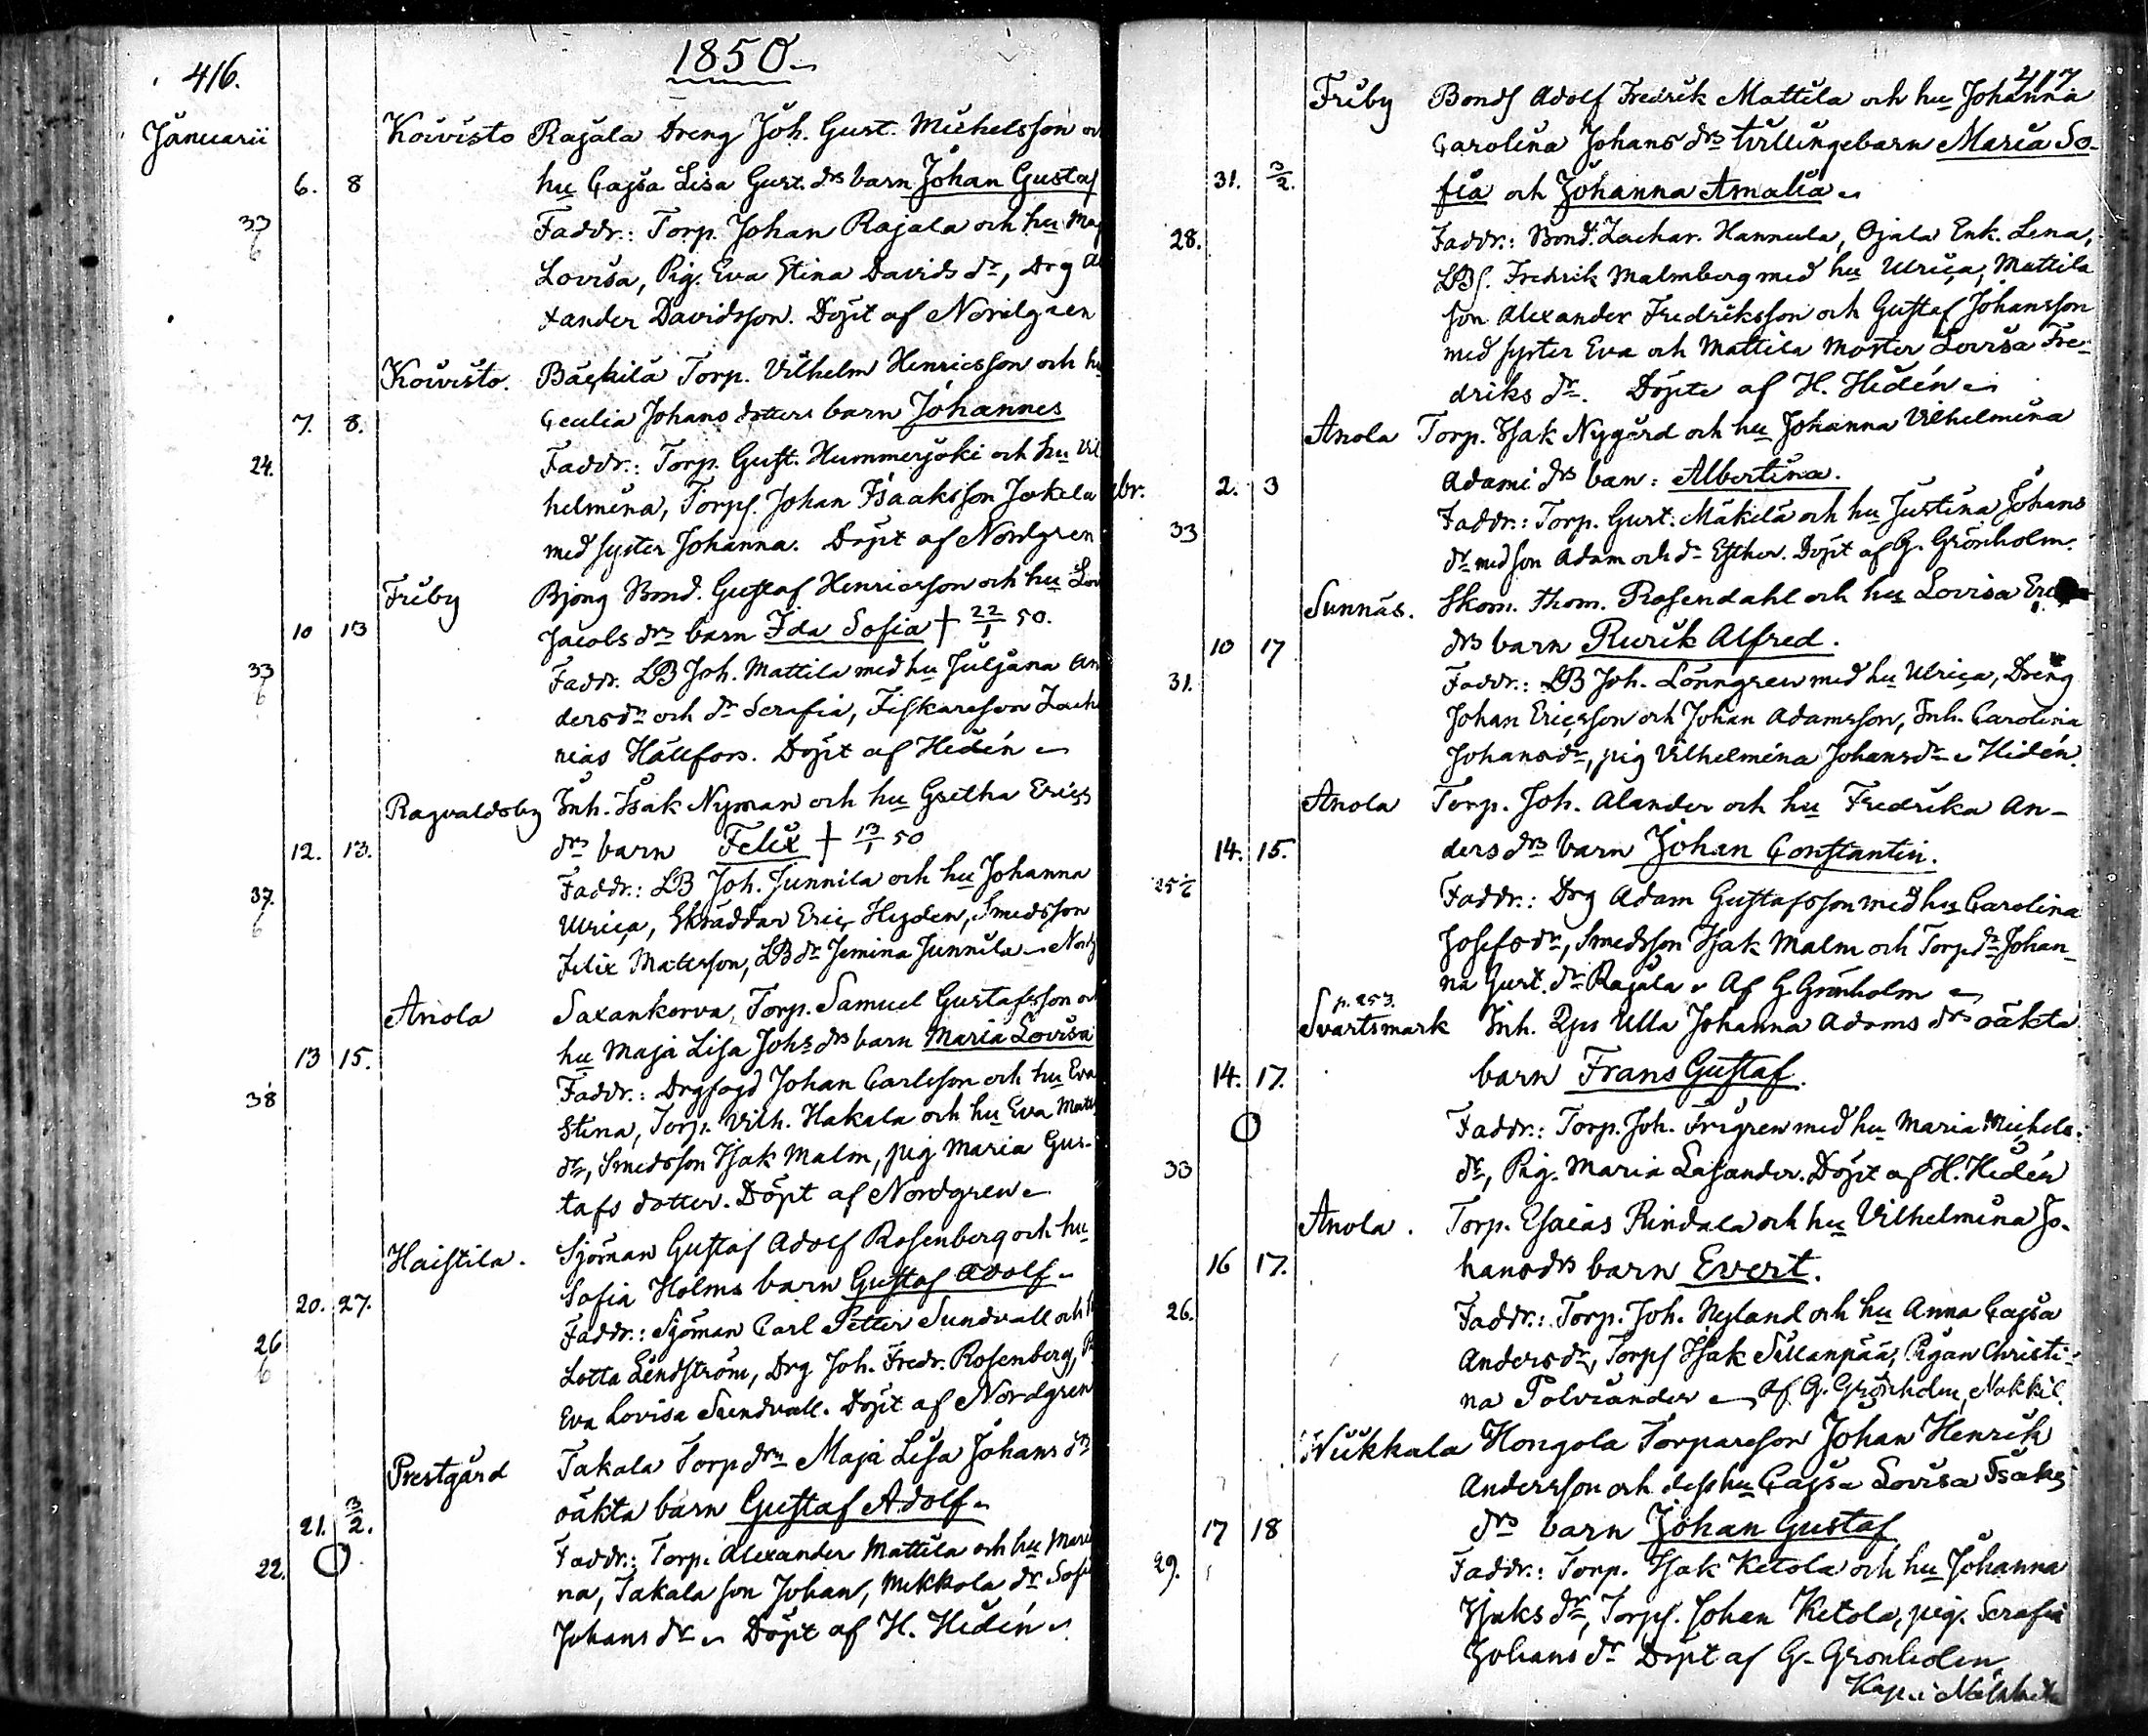 416.
1850
Januarii
Koivisto Rajala Dreng Joh. Gust. Michelsson
6. 8 hu Cajsa Lisa Gust. drs barn Johan Gustaf
33 Faddr.: Torp. Johan Rajala och hu Maj
6 Lovisa, Pig. Eva Stina Davids dr, Drg
xander Davidsson. Döpt af Nordgren
Koivisto. Bäckilä Torp. Vilhelm Henricsson och hu
7. 8. Cecilia Johans dotters barn Johannes
24. Faddr.: Torp. Gust. Hummerjoki och hu Vil
helmina, Torps. Johan Isaaksson Jokela
med syster Johanna. Döpt af Nordgren
Friby Bjong Bond. Gustaf Henricsson och hu Lov
10 13 Jacobs drs barn Ida Sofia + 22/1 50.
33 Faddr. LB Joh. Mattila med hu Juljana An
6 dersdr och dr Serafia, Fiskareson Zach
rias Hällfors. Döpt af Hidén
Ragvaldsby Inh. Isak Nyman och hu Gretha Erics
12. 13. drs barn Felix + 13/1 50
37. Faddr.: LB Joh. Junnila och hu Johanna
6 Ulrica, Skräddar Eric Hyden, Smedsson
Felix Mattsson, LB dr Jemina Junnila Nordg
Anola Saxankorva, Torp. Samuel Gustafsson och
13 15. hu Maja Lisa Johs drs barn Maria Lovisa
38 Faddr.: Drgfogd Johan Carlsson och hu Eva
Stina, Torp. Vilh. Hakala och hu Eva Matts
dr, Smedsson Isak Malm, pig Maria Gus-
tafs dotter. Döpt af Nordgren
Haistila. Sjöman Gustaf Adolf Rosenberg och hu
20. 27. Sofia Holms barn Gustaf Adolf
26 Faddr.: Sjöman Carl Petter Sundvall och h
6 Lotta Lindström, Drg Joh. Fredr. Rosenberg, P
Eva Lovisa Sundvall. Döpt af Nordgren
Prestgård Takala Torp drn Maja Lisa Johans drs
21. 3/2. oäkta barn Gustaf Adolf
22. Faddr.: Torp. Alexander Mattila och hu Mari
na, Takala son Johan, Mikkola dr Sofi
Johans dr Döpt af H. Hidén
417
Friby Bonds Adolf Fredrik Mattila och hu Johanna
Carolina Johans drs tvillingebarn Maria So-
31. 3/2. fia och Johanna Amalia
28. Faddr.: Bond. Zachar. Hannula, Ojala Enk. Lena,
LBs. Fredrik Malmberg med hu Ulrica, Mattila
son Alexander Fredriksson och Gustaf Johansson
med syster Eva och Mattila Moster Lovisa Fre-
driks dr. Döpte af H. Hidén
Anola Torp. Isak Nygård och hu Johanna Vilhelmina
br. 2. 3 Adami drs ban: Albertina.
33 Faddr.: Torp. Gust. Mäkilä och hu Justina Johans
dr med son Adam och dr Esther. Döpt af G. Grönholm.
Sunnäs. Skom. Thom. Rosendahl och hu Lovisa Eri
10 17 drs barn Rurik Alfred.
31. Faddr.: LB Joh. Lönngren med hu Ulrica, Dreng
Johan Ericsson och Johan Adamsson, Inh. Carolina
Johansdr, pig Vilhelmina Johansdr Hidén.
Anola Torp. Joh. Alander och hu Fredrika An-
14. 15. ders drs barn Johan Constantin.
25 1/6 Faddr.: Drg Adam Gustafsson med hu Carolina
Josefsdr, Smedsson Isak Malm och Torp dr Johan-
na Gust. dr Rajala Af G Grönholm
p. 253.
Svartsmark Inh. Qps Ulla Johanna Adams drs oäkta
14. 17. barn Frans Gustaf.
Faddr.: Torp. Joh. Frigren med hu Maria Michels-
33 dr, Pig. Maria Lasander. Döpt af H. Hidén
Anola. Torp. Esaias Rindala och hu Vilhelmina Jo-
16 17. hansdrs barn Evert.
26. Faddr.: Torp. Joh. Nyland och hu Anna Cajsa
Andersdr, Torps Isak Sillanpää, Pigan Christi-
na Polviander Af G. Grönholm, Nakkil.
Wiikkala Hongola Torpareson Johan Henrik
Andersson och dess hu Cajsa Lovisa Isaks
17 18 drs barn Johan Gustaf
29. Faddr.: Torp. Isak Ketola och hu Johanna
Isaks dr, Torps. Johan Ketola, pig. Serafia
Johans dr Döpt af G. Grönholm
Kap. i